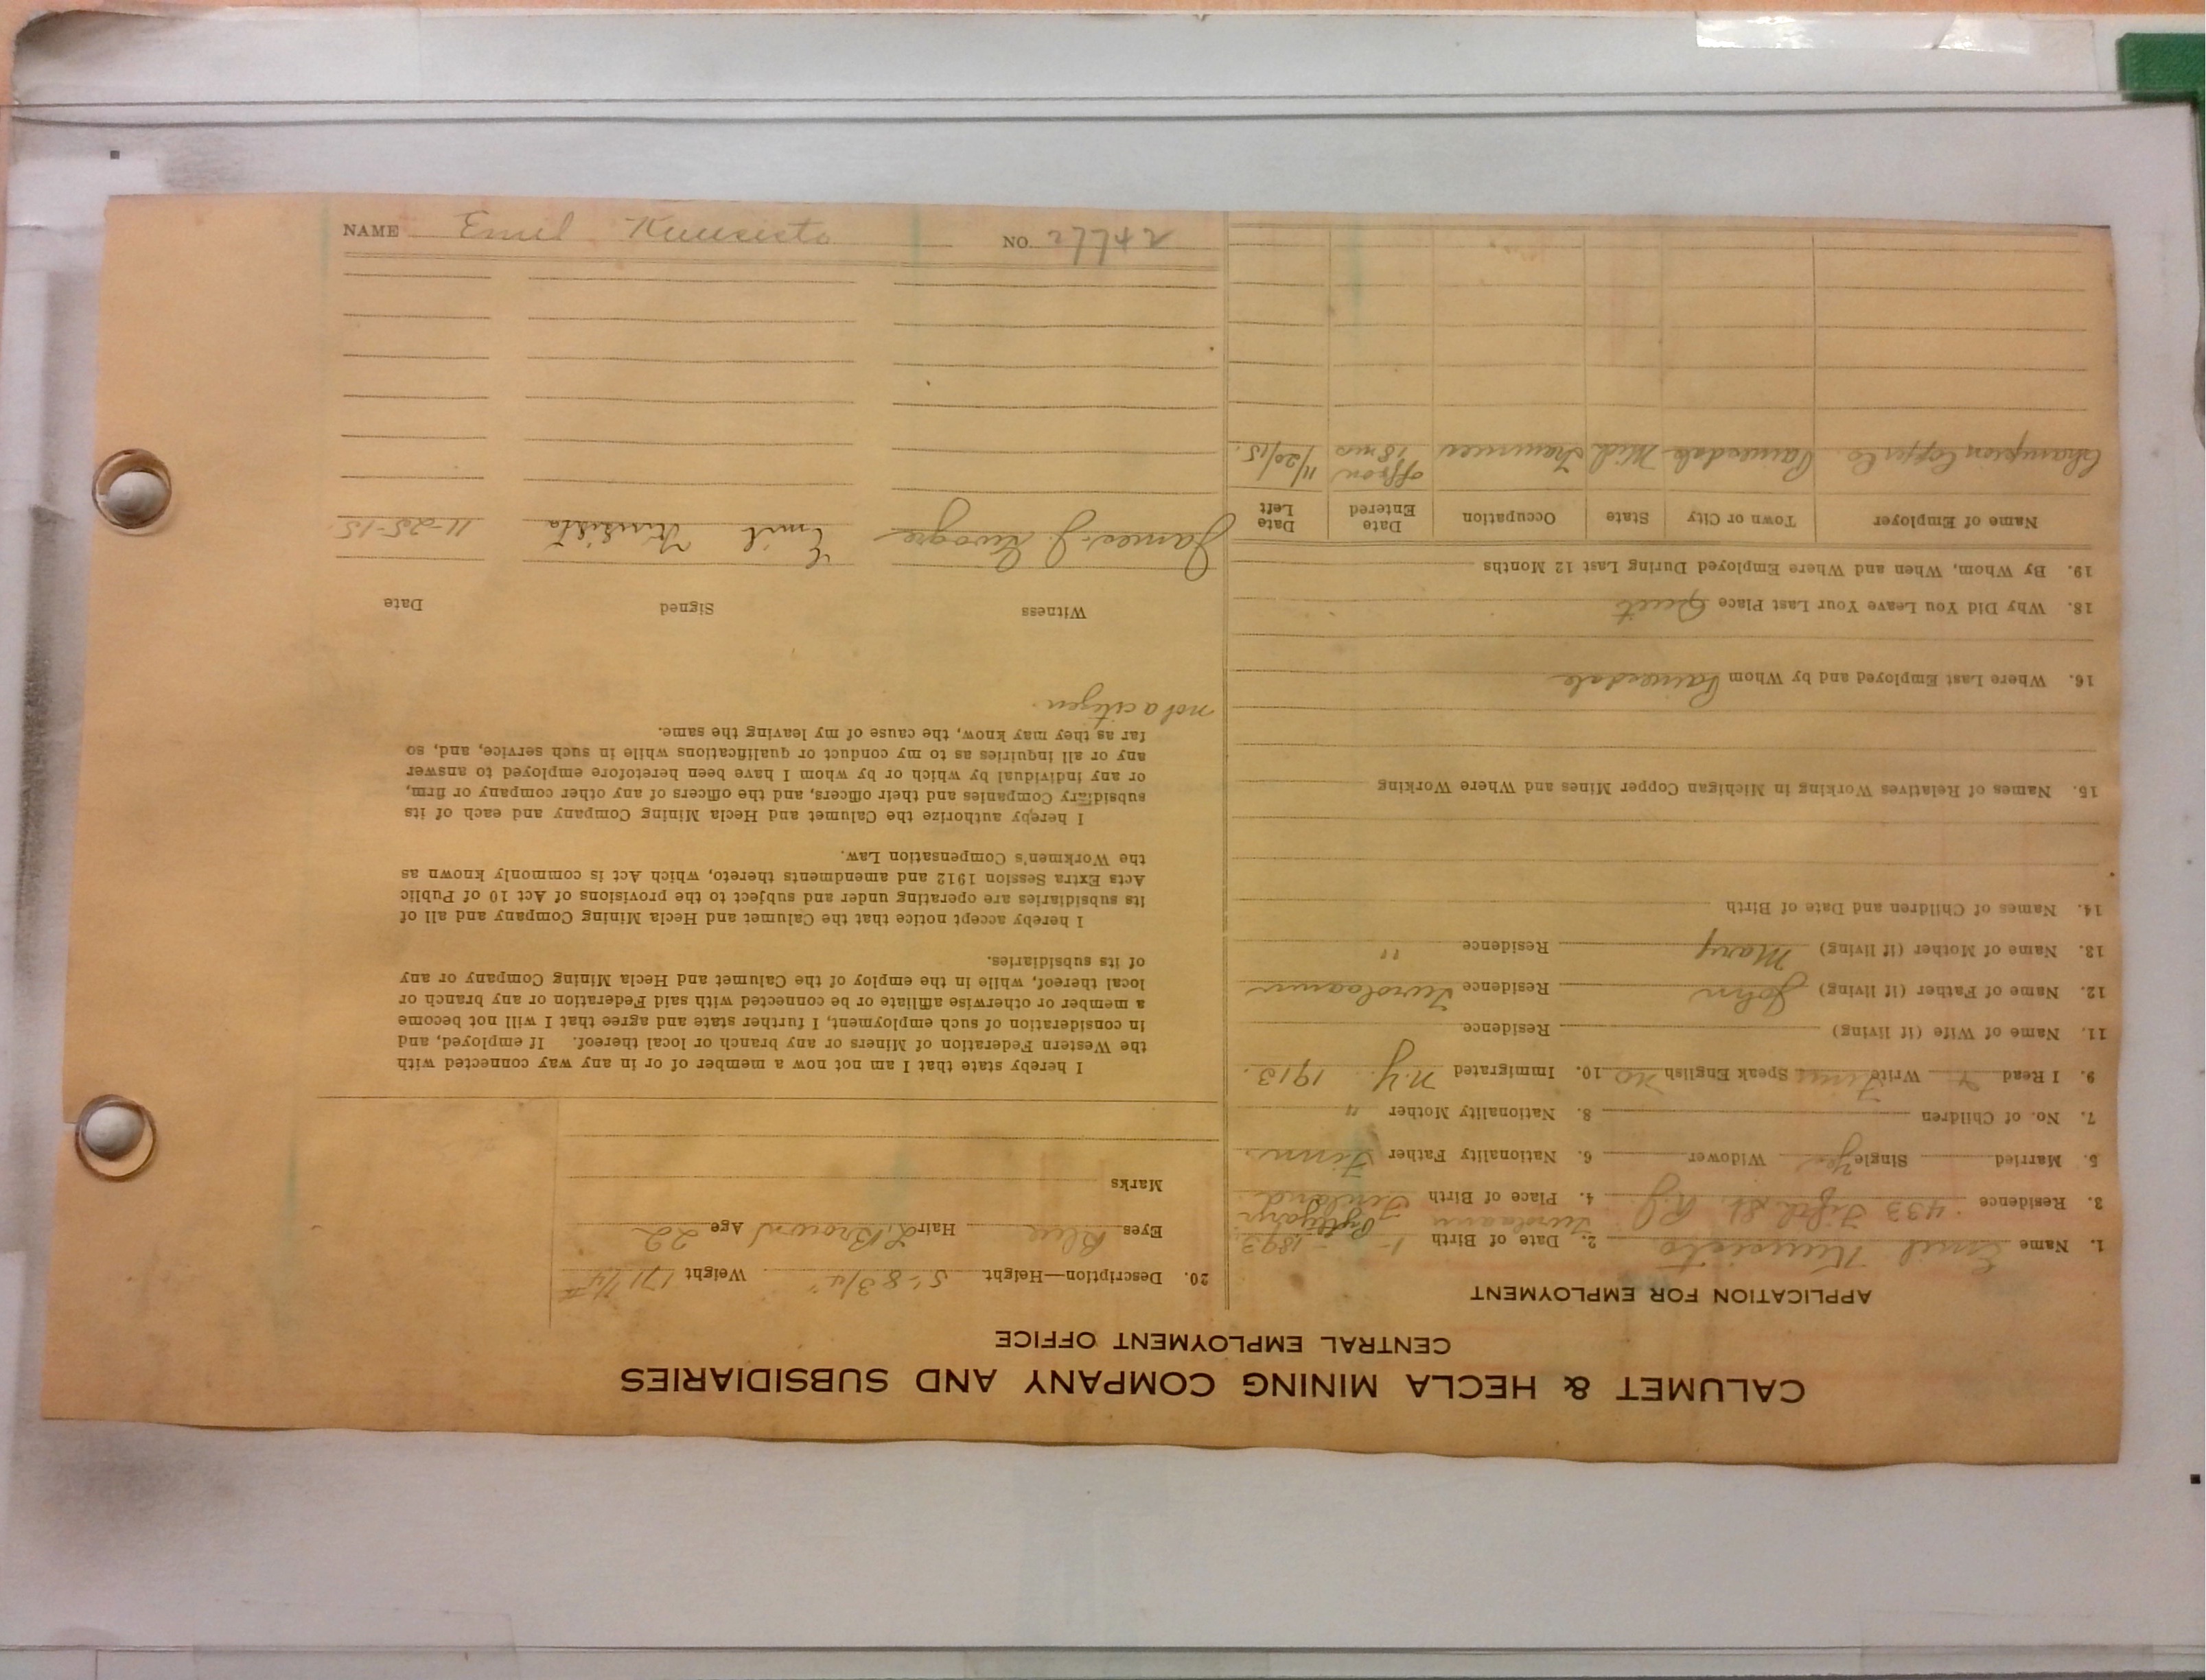 CALUMET & HECLA MINING COMPANY AND SUBSIDIARIES
CENTRAL EMPLOYMENT OFFICE
APPLICATION FOR EMPLOYMENT
1. Name Emil Kuusisto 2. Date of Birth 1893
3. Residence 433 Fifth St. 4. Place of Birth Finland
5. Married Single Yes Widower 6. Nationality Father Finn
7. No. of Children 8. Nationality Mother "
9. I Read Write Finn Speak English no 10. Immigrated N.Y. 1913.
11. Name of Wife (if living) Residence
12. Name of Father (if living) John Residence
13. Name of Mother (if living) Mary Residence "
14. Names of Children and Date of Birth
15. Names of Relatives Working in Michigan Copper Mines and Where Working
16. Where Last Employed and by Whom Painesdale
18. Why Did You Leave Your Last Place Quit
19. By Whom, When and Where Employed During Last 12 Months
Name of Employer Town or City State Occupation Date Entered Date Left
Champion Copper Co. Painesdale Mich Trammer 18 mos 11/20/15.
20. Description—Height 5'-8 3/4" Weight 171 1/4 #
Eyes Blue Hair L. Brown Age 22
Marks
I hereby state that I am not now a member of or in any way connected with
the Western Federation of Miners or any branch or local thereof. If employed, and
in consideration of such employment, I further state and agree that I will not become
a member or otherwise affiliate or be connected with said Federation or any branch or
local thereof, while in the employ of the Calumet and Hecla Mining Company or any
of its subsidiaries.
I hereby accept notice that the Calumet and Hecla Mining Company and all of
its subsidiaries are operating under and subject to the provisions of Act 10 of Public
Acts Extra Session 1912 and amendments thereto, which Act is commonly known as
the Workmen's Compensation Law.
I hereby authorize the Calumet and Hecla Mining Company and each of its
subsidiary Companies and their officers, and the officers of any other company or firm,
or any individual by which or by whom I have been heretofore employed to answer
any or all inquiries as to my conduct or qualifications while in such service, and, so
far as they may know, the cause of my leaving the same.
not a citizen.
Witness Signed Date
James J. Emil Kuusisto 11-25-15.
NAME Emil Kuusisto NO.